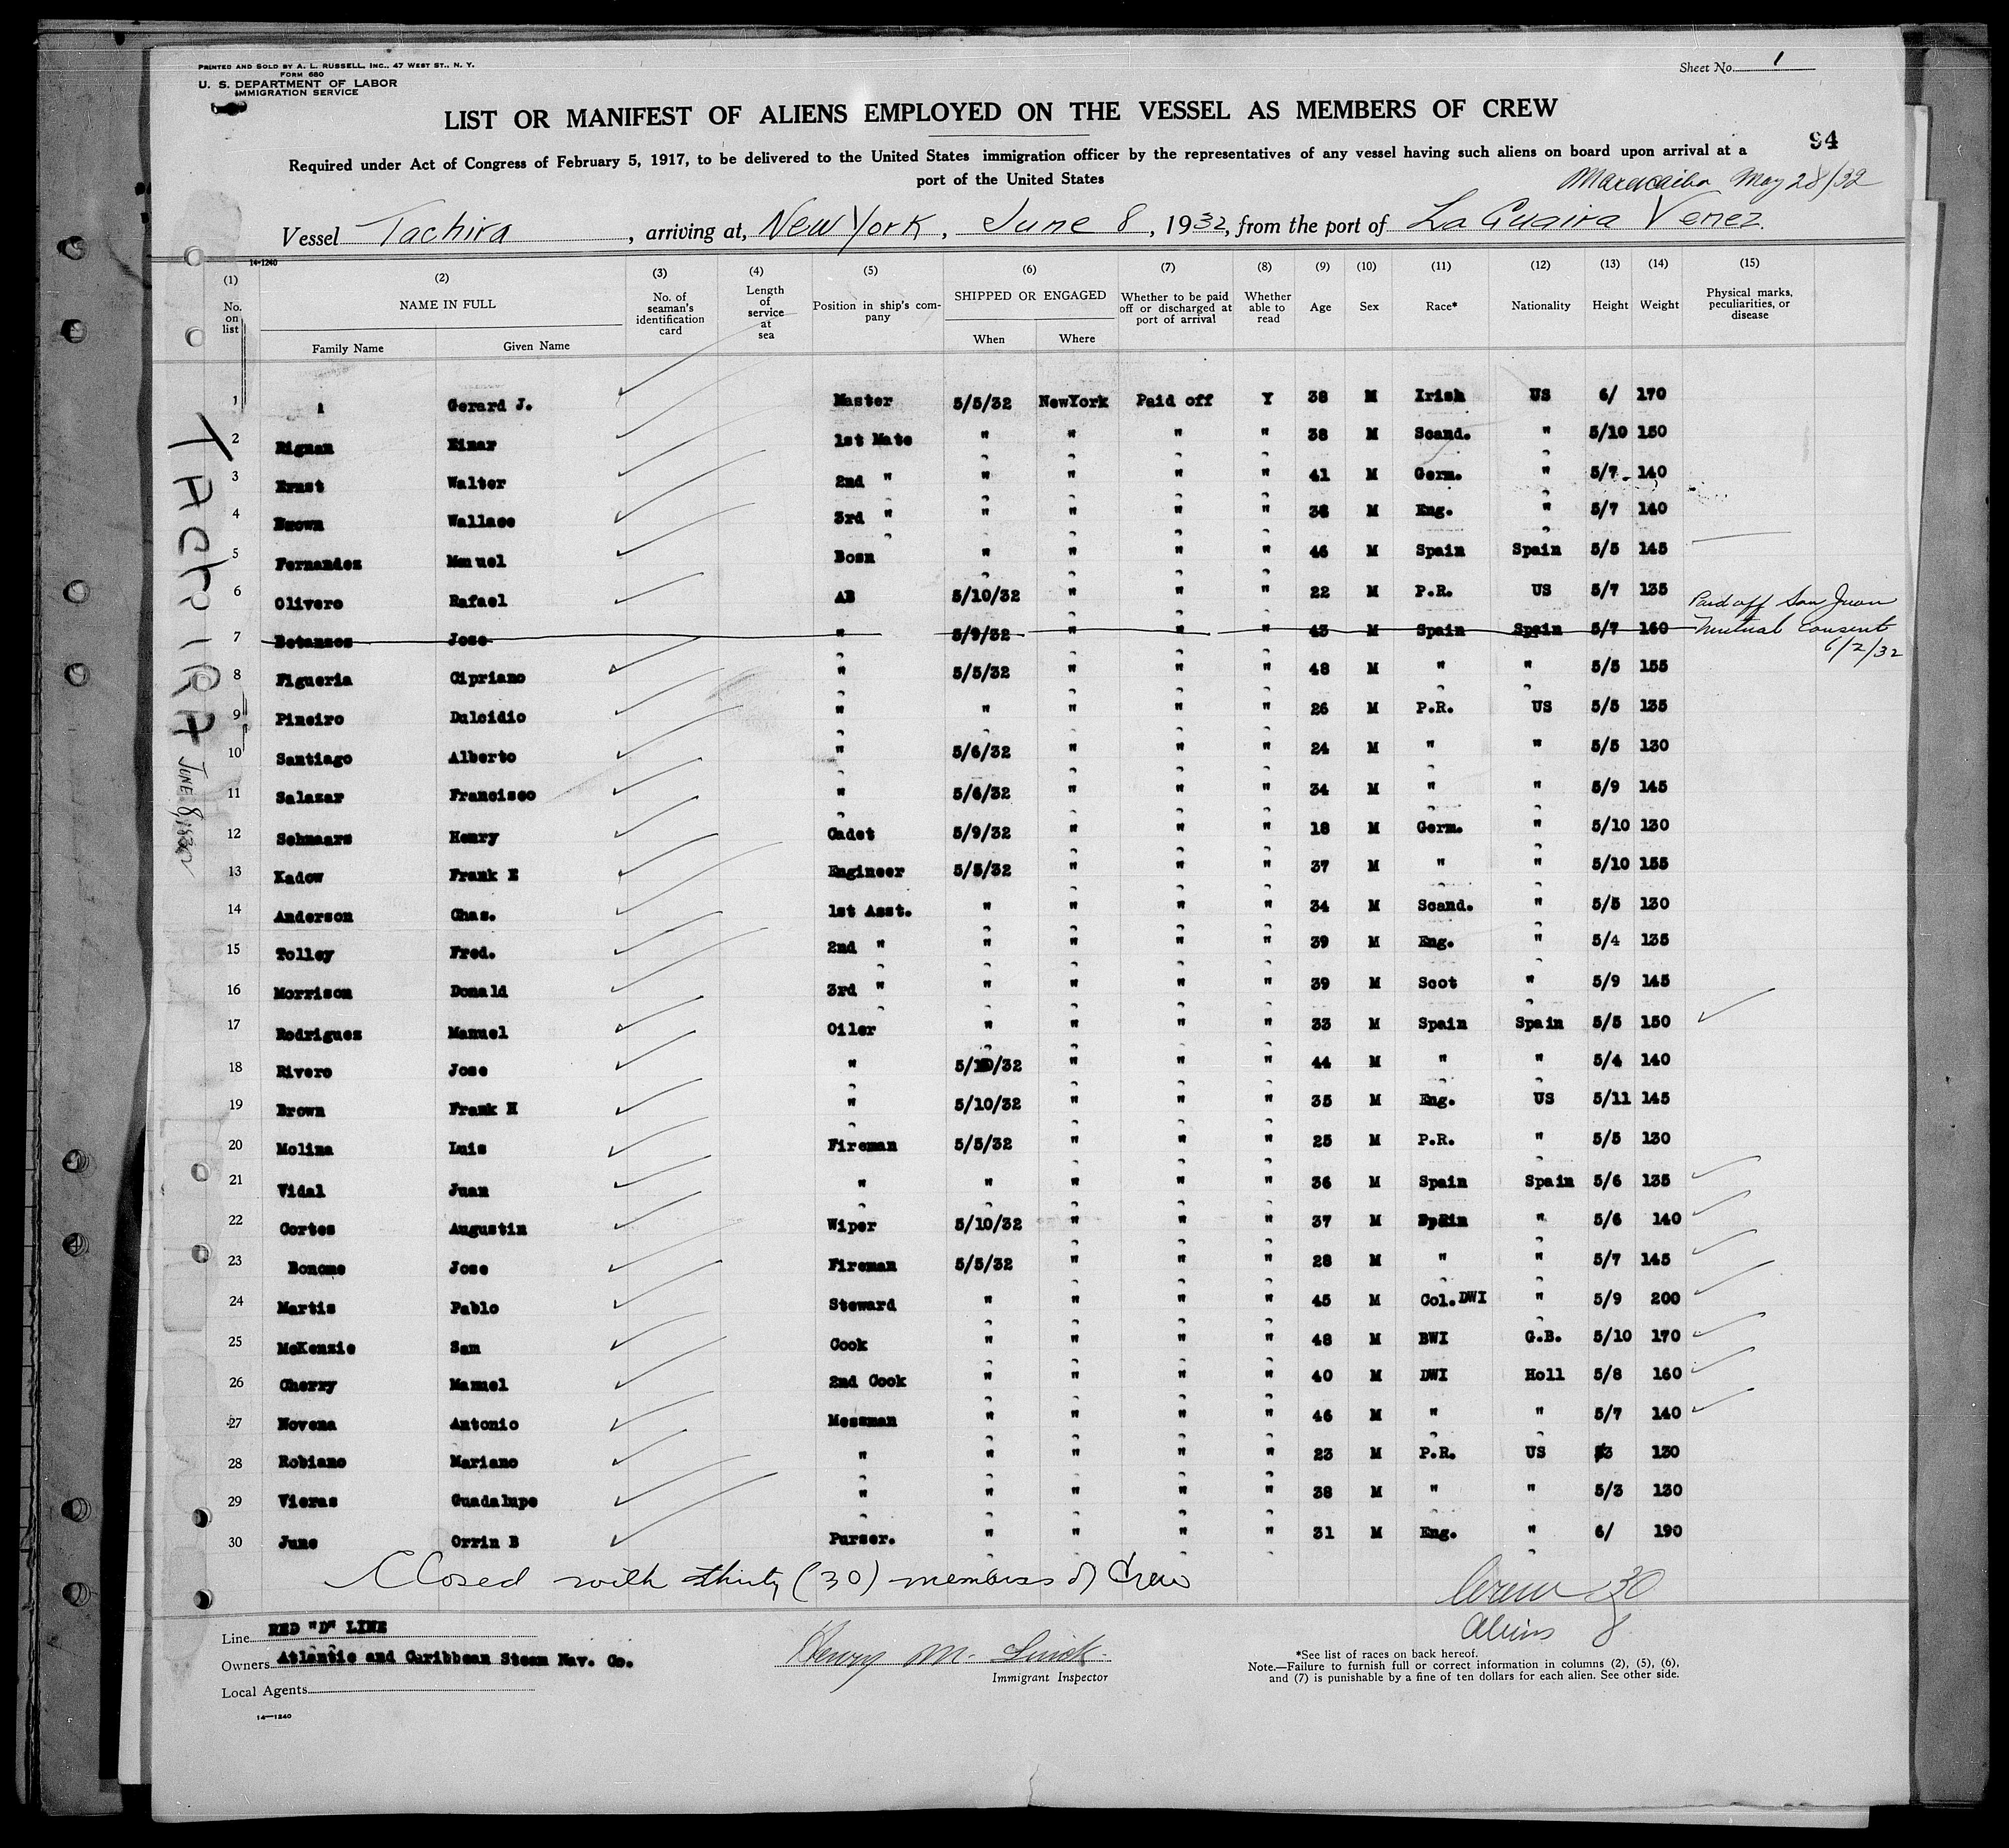 PRINTED AND SOLD BY A. L. RUSSELL, INC., 47 WEST ST., N. Y.
FORM 680
U. S. DEPARTMENT OF LABOR
IMMIGRATION SERVICE
Sheet No. 1
LIST OR MANIFEST OF ALIENS EMPLOYED ON THE VESSEL AS MEMBERS OF CREW
94
Required under Act of Congress of February 5, 1917, to be delivered to the United States immigration officer by the representatives of any vessel having such aliens on board upon arrival at a
port of the United States
Maracaibo May 28/32
Vessel Tachira, arriving at, New York, June 8, 1932, from the port of La Guaira Venez.
14-1240
(1) (2) (3) (4) (5) (6) (7) (8) (9) (10) (11) (12) (13) (14) (15)
No. on list NAME IN FULL No. of seaman's identification card Length of service at sea Position in ship's company SHIPPED OR ENGAGED Whether to be paid off or discharged at port of arrival Whether able to read Age Sex Race* Nationality Height Weight Physical marks, peculiarities, or disease
Family Name Given Name When Where
1 Gerard J. Master 5/5/32 NewYork Paid off Y 38 M Irish US 6/ 170
2 Rignan Einar 1st Mate " " " " 38 M Scand. " 5/10 150
3 Ernst Walter 2nd " " " " " 41 M Germ. " 5/7 140
4 Brown Wallace 3rd " " " " " 38 M Eng. " 5/7 140
5 Fernandez Manuel Bosn " " " " 46 M Spain Spain 5/5 145
6 Olivero Rafael AB 5/10/32 " " " 22 M P.R. US 5/7 135
7 Betanzos Jose " 5/9/32 " " " 43 M Spain Spain 5/7 160 Paid off San Juan mutual consent 6/2/32
8 Figueria Cipriano " 5/5/32 " " " 48 M " " 5/5 155
9 Pineiro Dulcidio " " " " " 26 M P.R. US 5/5 135
10 Santiago Alberto " 5/6/32 " " " 24 M " " 5/5 130
11 Salazar Francisco " 5/6/32 " " " 34 M " " 5/9 145
12 Schnaars Henry Cadet 5/9/32 " " " 18 M Germ. " 5/10 130
13 Kadow Frank E Engineer 5/5/32 " " " 37 M " " 5/10 155
14 Anderson Chas. 1st Asst. " " " " 34 M Scand. " 5/5 130
15 Tolley Fred. 2nd " " " " " 39 M Eng. " 5/4 135
16 Morrison Donald 3rd " " " " " 39 M Scot " 5/9 145
17 Rodriguez Manuel Oiler " " " " 33 M Spain Spain 5/5 150
18 Rivero Jose " 5/10/32 " " " 44 M " " 5/4 140
19 Brown Frank H " 5/10/32 " " " 35 M Eng. US 5/11 145
20 Molina Luis Fireman 5/5/32 " " " 25 M P.R. " 5/5 130
21 Vidal Juan " " " " " 36 M Spain Spain 5/6 135
22 Cortes Augustin Wiper 5/10/32 " " " 37 M Spain " 5/6 140
23 Bonome Jose Fireman 5/5/32 " " " 28 M " " 5/7 145
24 Martis Pablo Steward " " " " 45 M Col. DWI " 5/9 200
25 McKenzie Sam Cook " " " " 48 M BWI G.B. 5/10 170
26 Cherry Manuel 2nd Cook " " " " 40 M DWI Holl 5/8 160
27 Novena Antonio Messman " " " " 46 M " " 5/7 140
28 Robiano Mariano " " " " " 23 M P.R. US 130
29 Vieras Guadalupe " " " " " 38 M " " 5/3 130
30 June Orrin B Purser. " " " " 31 M Eng. " 6/ 190
TACHIRA JUNE 8, 1932
Closed with thirty (30) members of Crew
Crew 30
Aliens 8
Line RED "D" LINE
Owners Atlantic and Caribbean Steam Nav. Co.
Local Agents
Henry M.
Immigrant Inspector
*See list of races on back hereof.
Note.—Failure to furnish full or correct information in columns (2), (5), (6),
and (7) is punishable by a fine of ten dollars for each alien. See other side.
14—1240